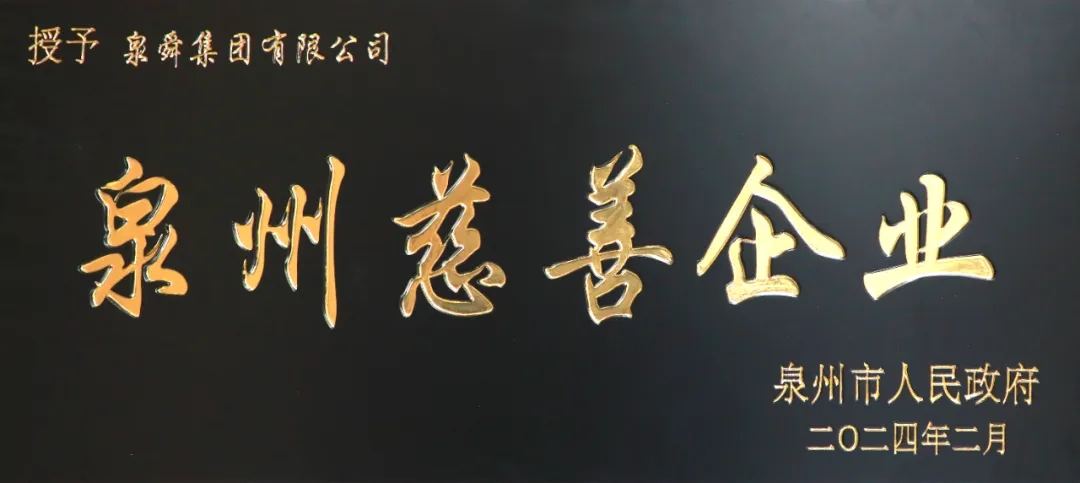 授予 泉舜集团有限公司
泉州慈善企业
泉州市人民政府
二〇二四年二月